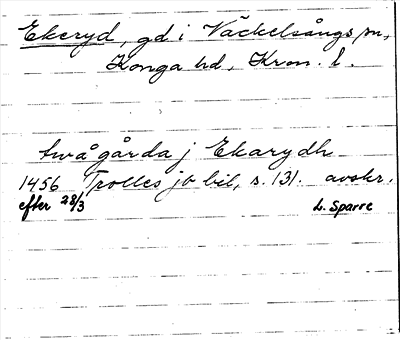 Ekeryd, gd i Väckelsångs sn,
Konga hd, Kron. l.
twå gårda j Ekarydh
1456 Trolles jb bil, s. 131. avskr.
efter 28/3 L. Sparre